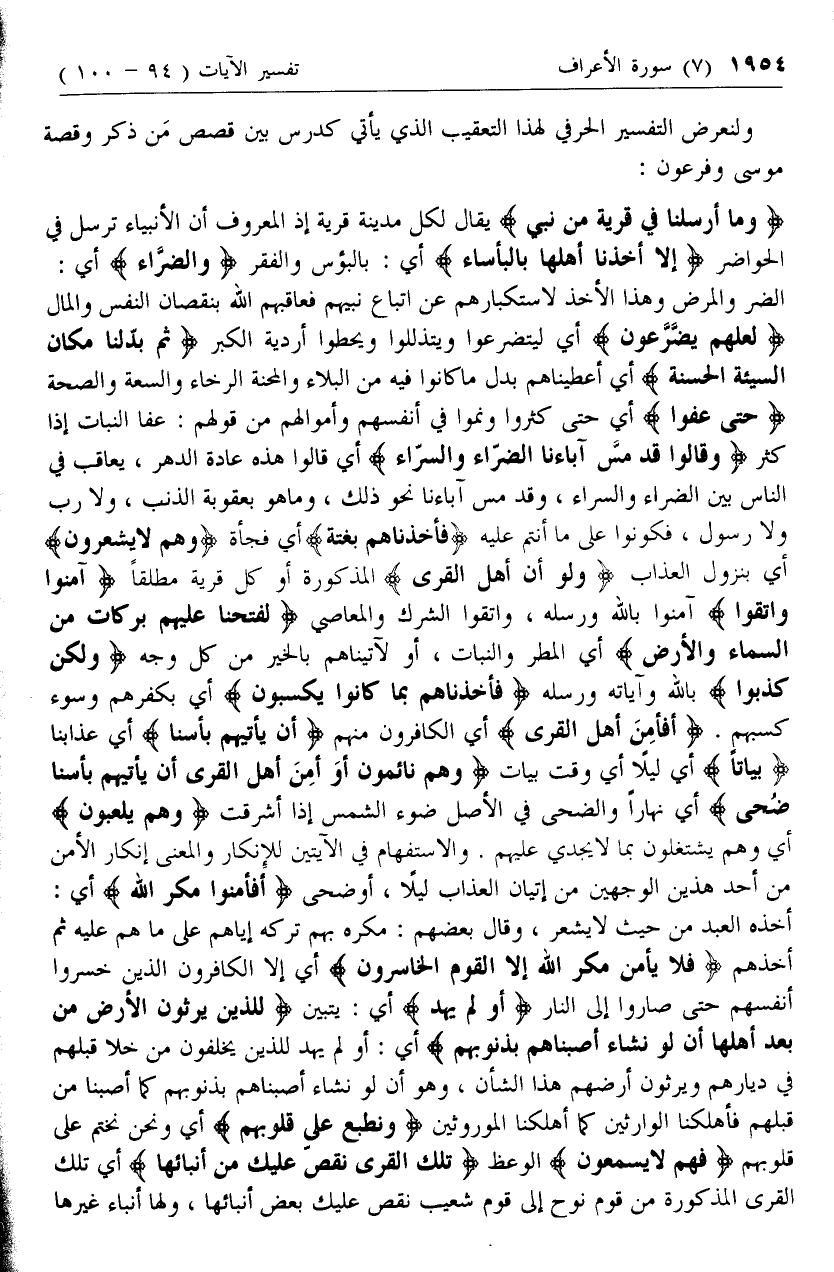 ١٩٥٤ (٧) سورة الأعراف تفسير الآيات ( ٩٤ - ١٠٠ )
ولنعرض التفسير الحرفي لهذا التعقيب الذي يأتي كدرس بين قصص مَن ذكر وقصة
موسى وفرعون :
﴿ وما أرسلنا في قرية من نبي ﴾ يقال لكل مدينة قرية إذ المعروف أن الأنبياء ترسل في
الحواضر ﴿ إلا أخذنا أهلها بالبأساء ﴾ أي : بالبؤس والفقر ﴿ والضرَّاء ﴾ أي :
الضر والمرض وهذا الأخذ لاستكبارهم عن اتباع نبيهم فعاقبهم الله بنقصان النفس والمال
﴿ لعلهم يضَّرَّعون ﴾ أي ليتضرعوا ويتذللوا ويحطوا أردية الكبر ﴿ ثم بدّلنا مكان
السيئة الحسنة ﴾ أي أعطيناهم بدل ماكانوا فيه من البلاء والمحنة الرخاء والسعة والصحة
﴿ حتى عفوا ﴾ أي حتى كثروا ونموا في أنفسهم وأموالهم من قولهم : عفا النبات إذا
كثر ﴿ وقالوا قد مسَّ آباءنا الضرّاء والسرّاء ﴾ أي قالوا هذه عادة الدهر ، يعاقب في
الناس بين الضراء والسراء ، وقد مس آباءنا نحو ذلك ، وماهو بعقوبة الذنب ، ولا رب
ولا رسول ، فكونوا على ما أنتم عليه ﴿فأخذناهم بغتة﴾ أي فجأة ﴿وهم لايشعرون﴾
أي بنزول العذاب ﴿ ولو أن أهل القرى ﴾ المذكورة أو كل قرية مطلقاً ﴿ آمنوا
واتقوا ﴾ آمنوا بالله ورسله ، واتقوا الشرك والمعاصي ﴿ لفتحنا عليهم بركات من
السماء والأرض ﴾ أي المطر والنبات ، أو لآتيناهم بالخير من كل وجه ﴿ ولكن
كذبوا ﴾ بالله وآياته ورسله ﴿ فأخذناهم بما كانوا يكسبون ﴾ أي بكفرهم وسوء
كسبهم . ﴿ أفأمِنَ أهل القرى ﴾ أي الكافرون منهم ﴿ أن يأتيهم بأسنا ﴾ أي عذابنا
﴿ بياتاً ﴾ أي ليلًا أي وقت بيات ﴿ وهم نائمون أوَ أمِنَ أهل القرى أن يأتيهم بأسنا
ضُحى ﴾ أي نهاراً والضحى في الأصل ضوء الشمس إذا أشرقت ﴿ وهم يلعبون ﴾
أي وهم يشتغلون بما لايجدي عليهم . والاستفهام في الآيتين للإنكار والمعنى إنكار الأمن
من أحد هذين الوجهين من إتيان العذاب ليلًا ، أوضحى ﴿ أفأمنوا مكر الله ﴾ أي :
أخذه العبد من حيث لايشعر ، وقال بعضهم : مكره بهم تركه إياهم على ما هم عليه ثم
أخذهم ﴿ فلا يأمن مكر الله إلا القوم الخاسرون ﴾ أي إلا الكافرون الذين خسروا
أنفسهم حتى صاروا إلى النار ﴿ أو لم يهد ﴾ أي : يتبين ﴿ للذين يرثون الأرض من
بعد أهلها أن لو نشاء أصبناهم بذنوبهم ﴾ أي : أو لم يهد للذين يخلفون من خلا قبلهم
في ديارهم ويرثون أرضهم هذا الشأن ، وهو أن لو نشاء أصبناهم بذنوبهم كما أصبنا من
قبلهم فأهلكنا الوارثين كما أهلكنا الموروثين ﴿ ونطبع على قلوبهم ﴾ أي ونحن نختم على
قلوبهم ﴿ فهم لايسمعون ﴾ الوعظ ﴿ تلك القرى نقصّ عليك من أنبائها ﴾ أي تلك
القرى المذكورة من قوم نوح إلى قوم شعيب نقص عليك بعض أنبائها ، ولها أنباء غيرها